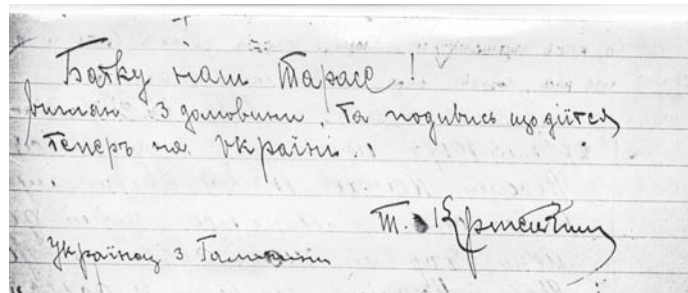 Батку наш Тарасе!
з домовини, та подивись що діїтся
теперь на україні..
Т.
Українец з Галичини